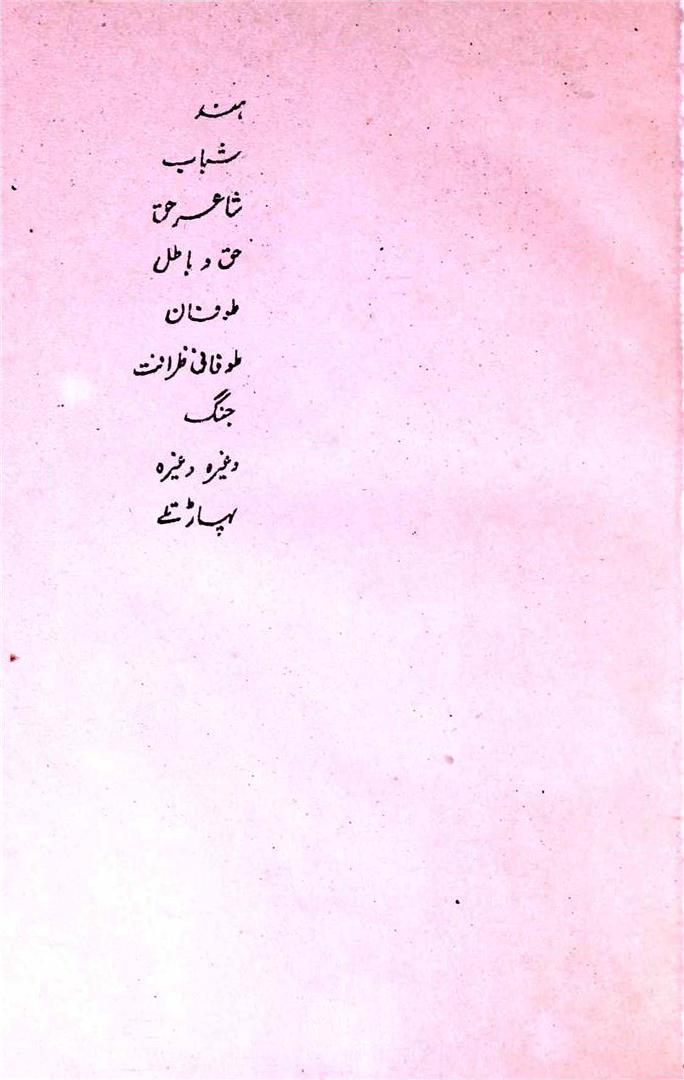 ہند
شباب
شاعر حق
حق و باطل
طوفان
طوفانی ظرافت
جنگ
وغیرہ وغیرہ
پہاڑ تلے